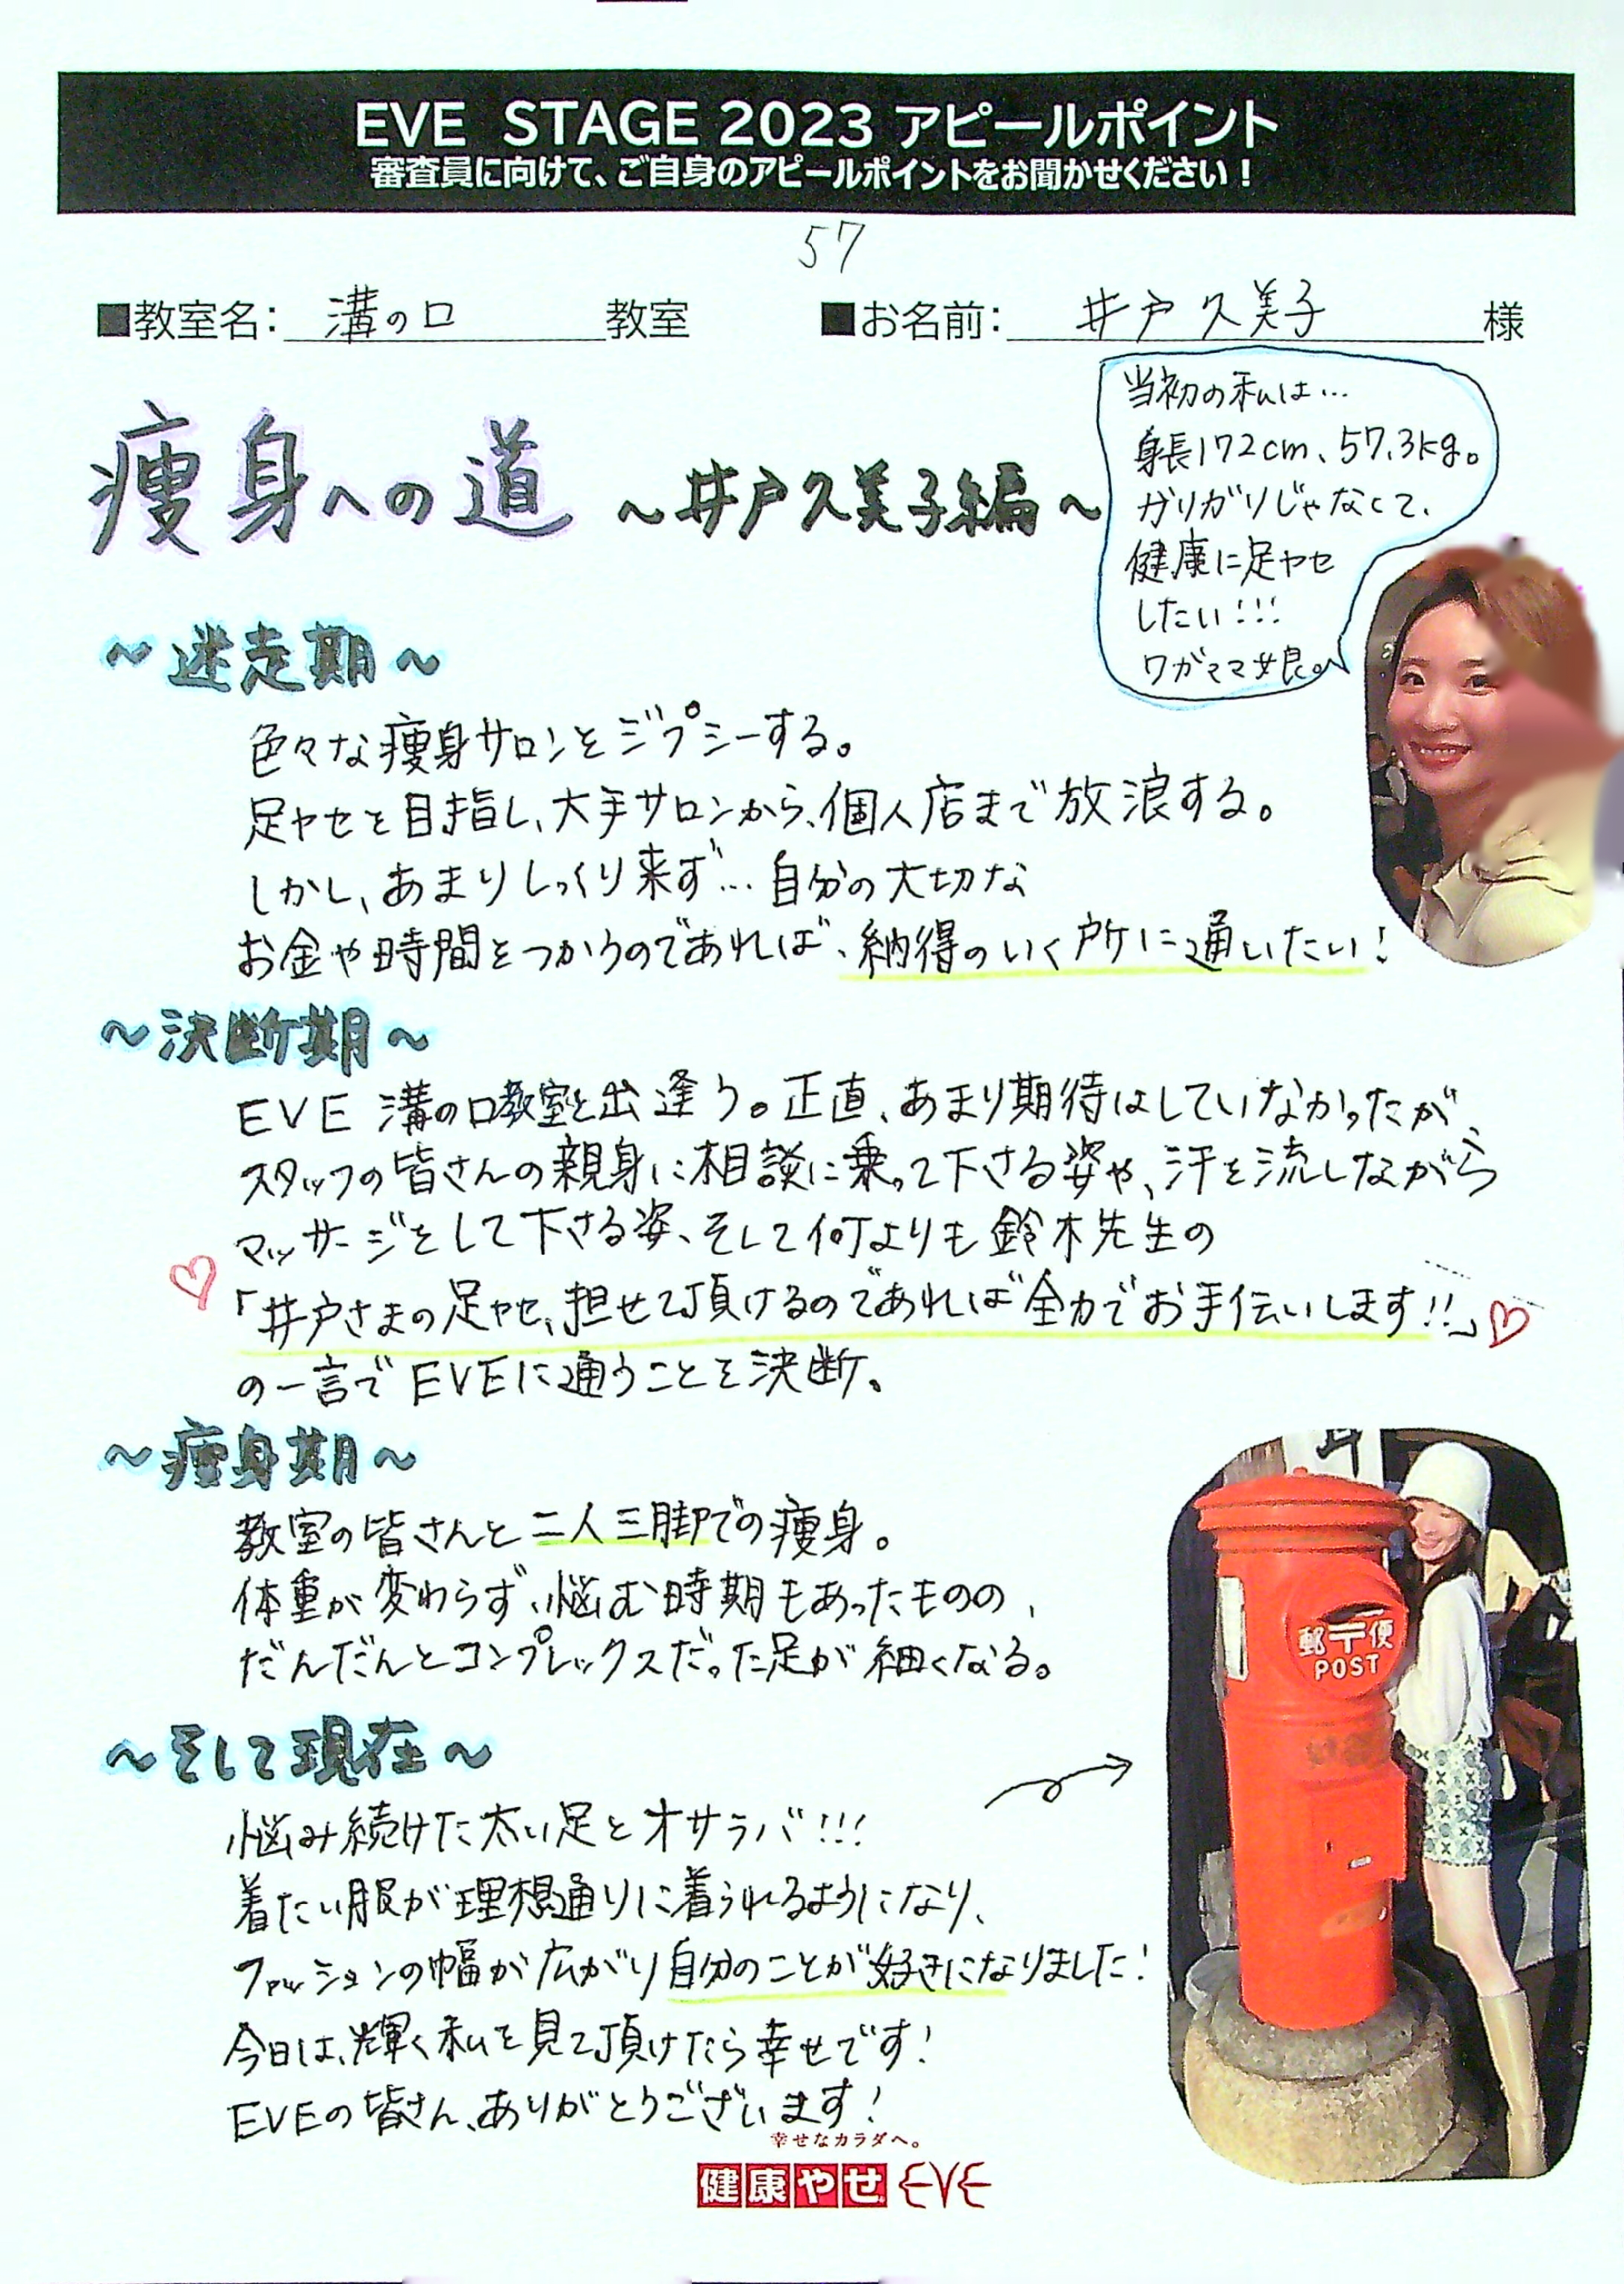 EVE STAGE 2023 アピールポイント
審査員に向けて、ご自身のアピールポイントをお聞かせください！
57
■教室名： 溝の口 教室
■お名前： 井戸 久美子 様
痩身への道 ～井戸久美子編～
当初の私は…
身長172cm、57.3kg。
ガリガリじゃなくて、
健康に足ヤセ
したい!!!
ワガママ娘。
～迷走期～
色々な痩身サロンをジプシーする。
足ヤセを目指し、大手サロンから、個人店まで放浪する。
しかし、あまりしっくり来ず…自分の大切な
お金や時間をつかうのであれば、納得のいく所に通いたい！
～決断期～
EVE 溝の口教室と出逢う。正直、あまり期待はしていなかったが、
スタッフの皆さんの親身に相談に乗って下さる姿や、汗を流しながら
マッサージをして下さる姿、そして何よりも鈴木先生の
「井戸さまの足ヤセ、担せて頂けるのであれば全力でお手伝いします!!」
の一言でEVEに通うことを決断。
～痩身期～
教室の皆さんと二人三脚での痩身。
体重が変わらず、悩む時期もあったものの、
だんだんとコンプレックスだった足が細くなる。
～そして現在～
悩み続けた太い足とオサラバ!!!
着たい服が理想通りに着られるようになり、
ファッションの幅が広がり自分のことが好きになりました！
今日は、輝く私を見て頂けたら幸せです！
EVEの皆さん、ありがとうございます！
郵〒便
POST
幸せなカラダへ。
健康やせ EVE